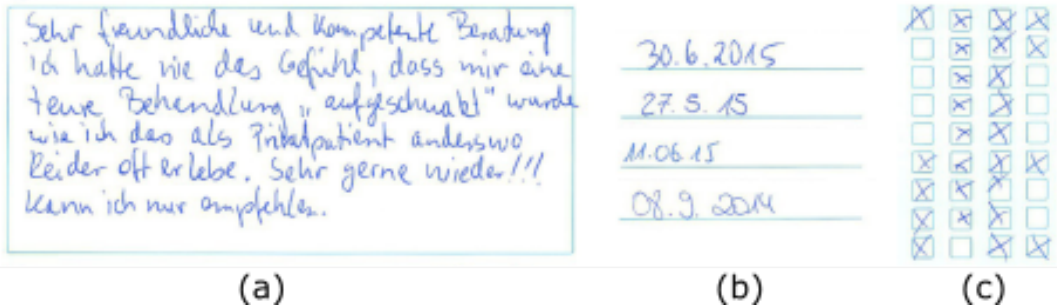 Sehr freundliche und kompetente Beratung
ich hatte nie das Gefühl, dass mir eine
teure Behandlung "aufgeschwatzt" wurde
wie ich das als Privatpatient anderswo
leider oft erlebe. Sehr gerne wieder!!!
Kann ich nur empfehlen.
30.6.2015
27.5.15
11.06.15
08.9.2014
(a) (b) (c)